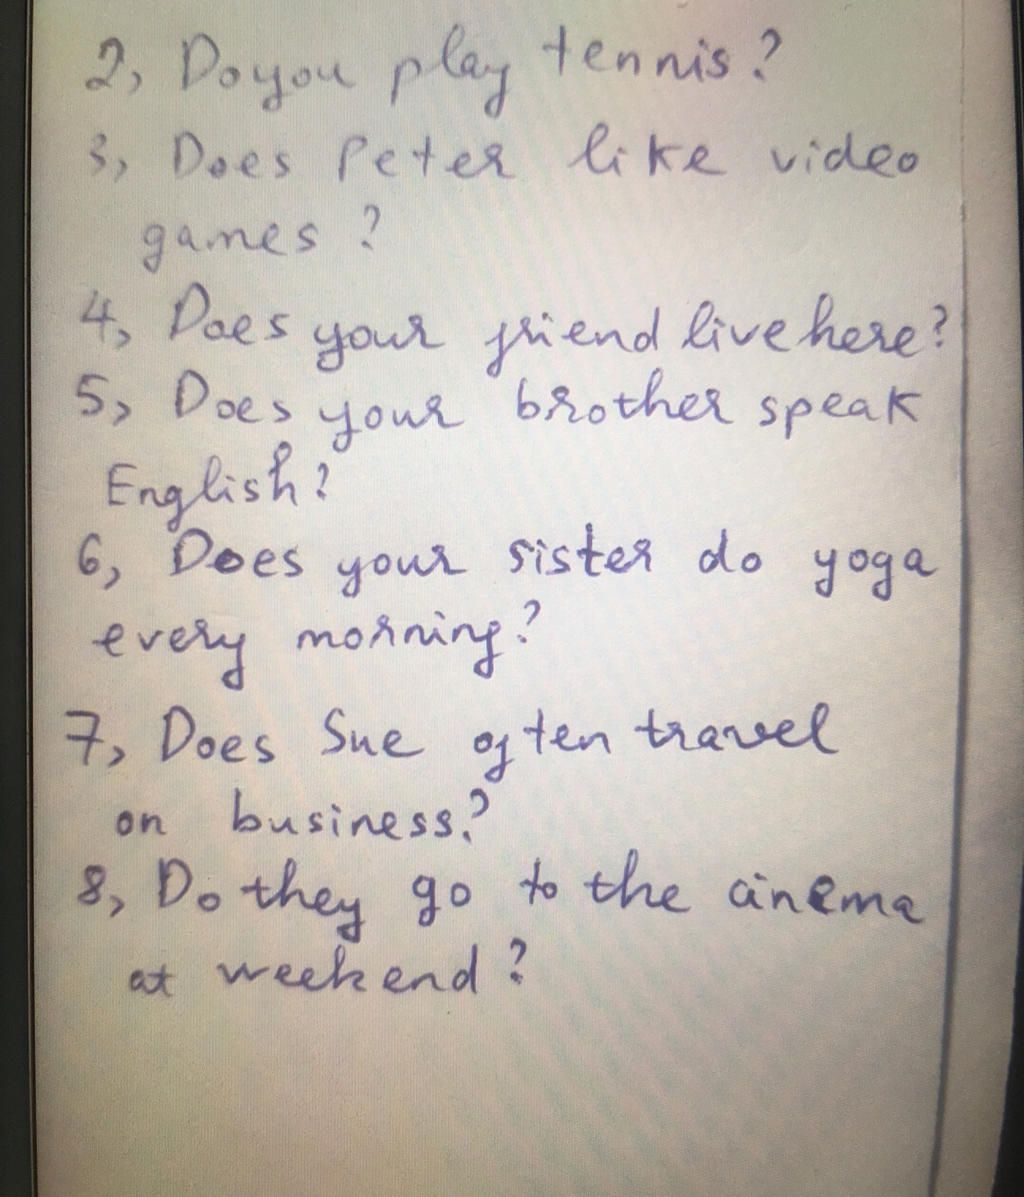 2, Do you play tennis?
3, Does Peter like video
games?
4, Does your friend live here?
5, Does your brother speak
English?
6, Does your sister do yoga
every morning?
7, Does Sue often travel
on business?
8, Do they go to the cinema
at weekend?